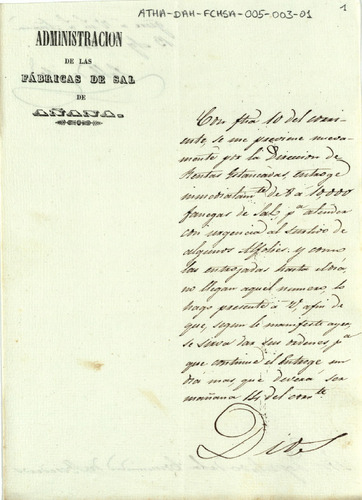 ATHA-DAH-FCHSA-005-003-01
1
ADMINISTRACION
DE LAS
FÁBRICAS DE SAL
DE
AÑANA.
Con fha 10 del corri-
ente, se me previene nueva-
mente por la Direccion de
Rentas Estancadas, entroge
inmediatamte de 8 a 10,000
fanegas de sal, pa atender
con urgencia al surtido de
algunos Alfolies, y como
las entrojadas hasta el dia,
no llegan aquel numero, lo
hago presente a V, afin de
que, segun le manifesté ayer,
se sirva dar sus ordenes pa
que continue el Entroge un
dia mas que deverá ser
mañana 14 del corrte
Dios